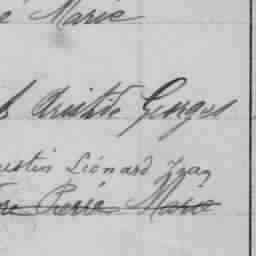 é Marie
Aristide Georges
ustin Léonard Jean
re Pierre Marie